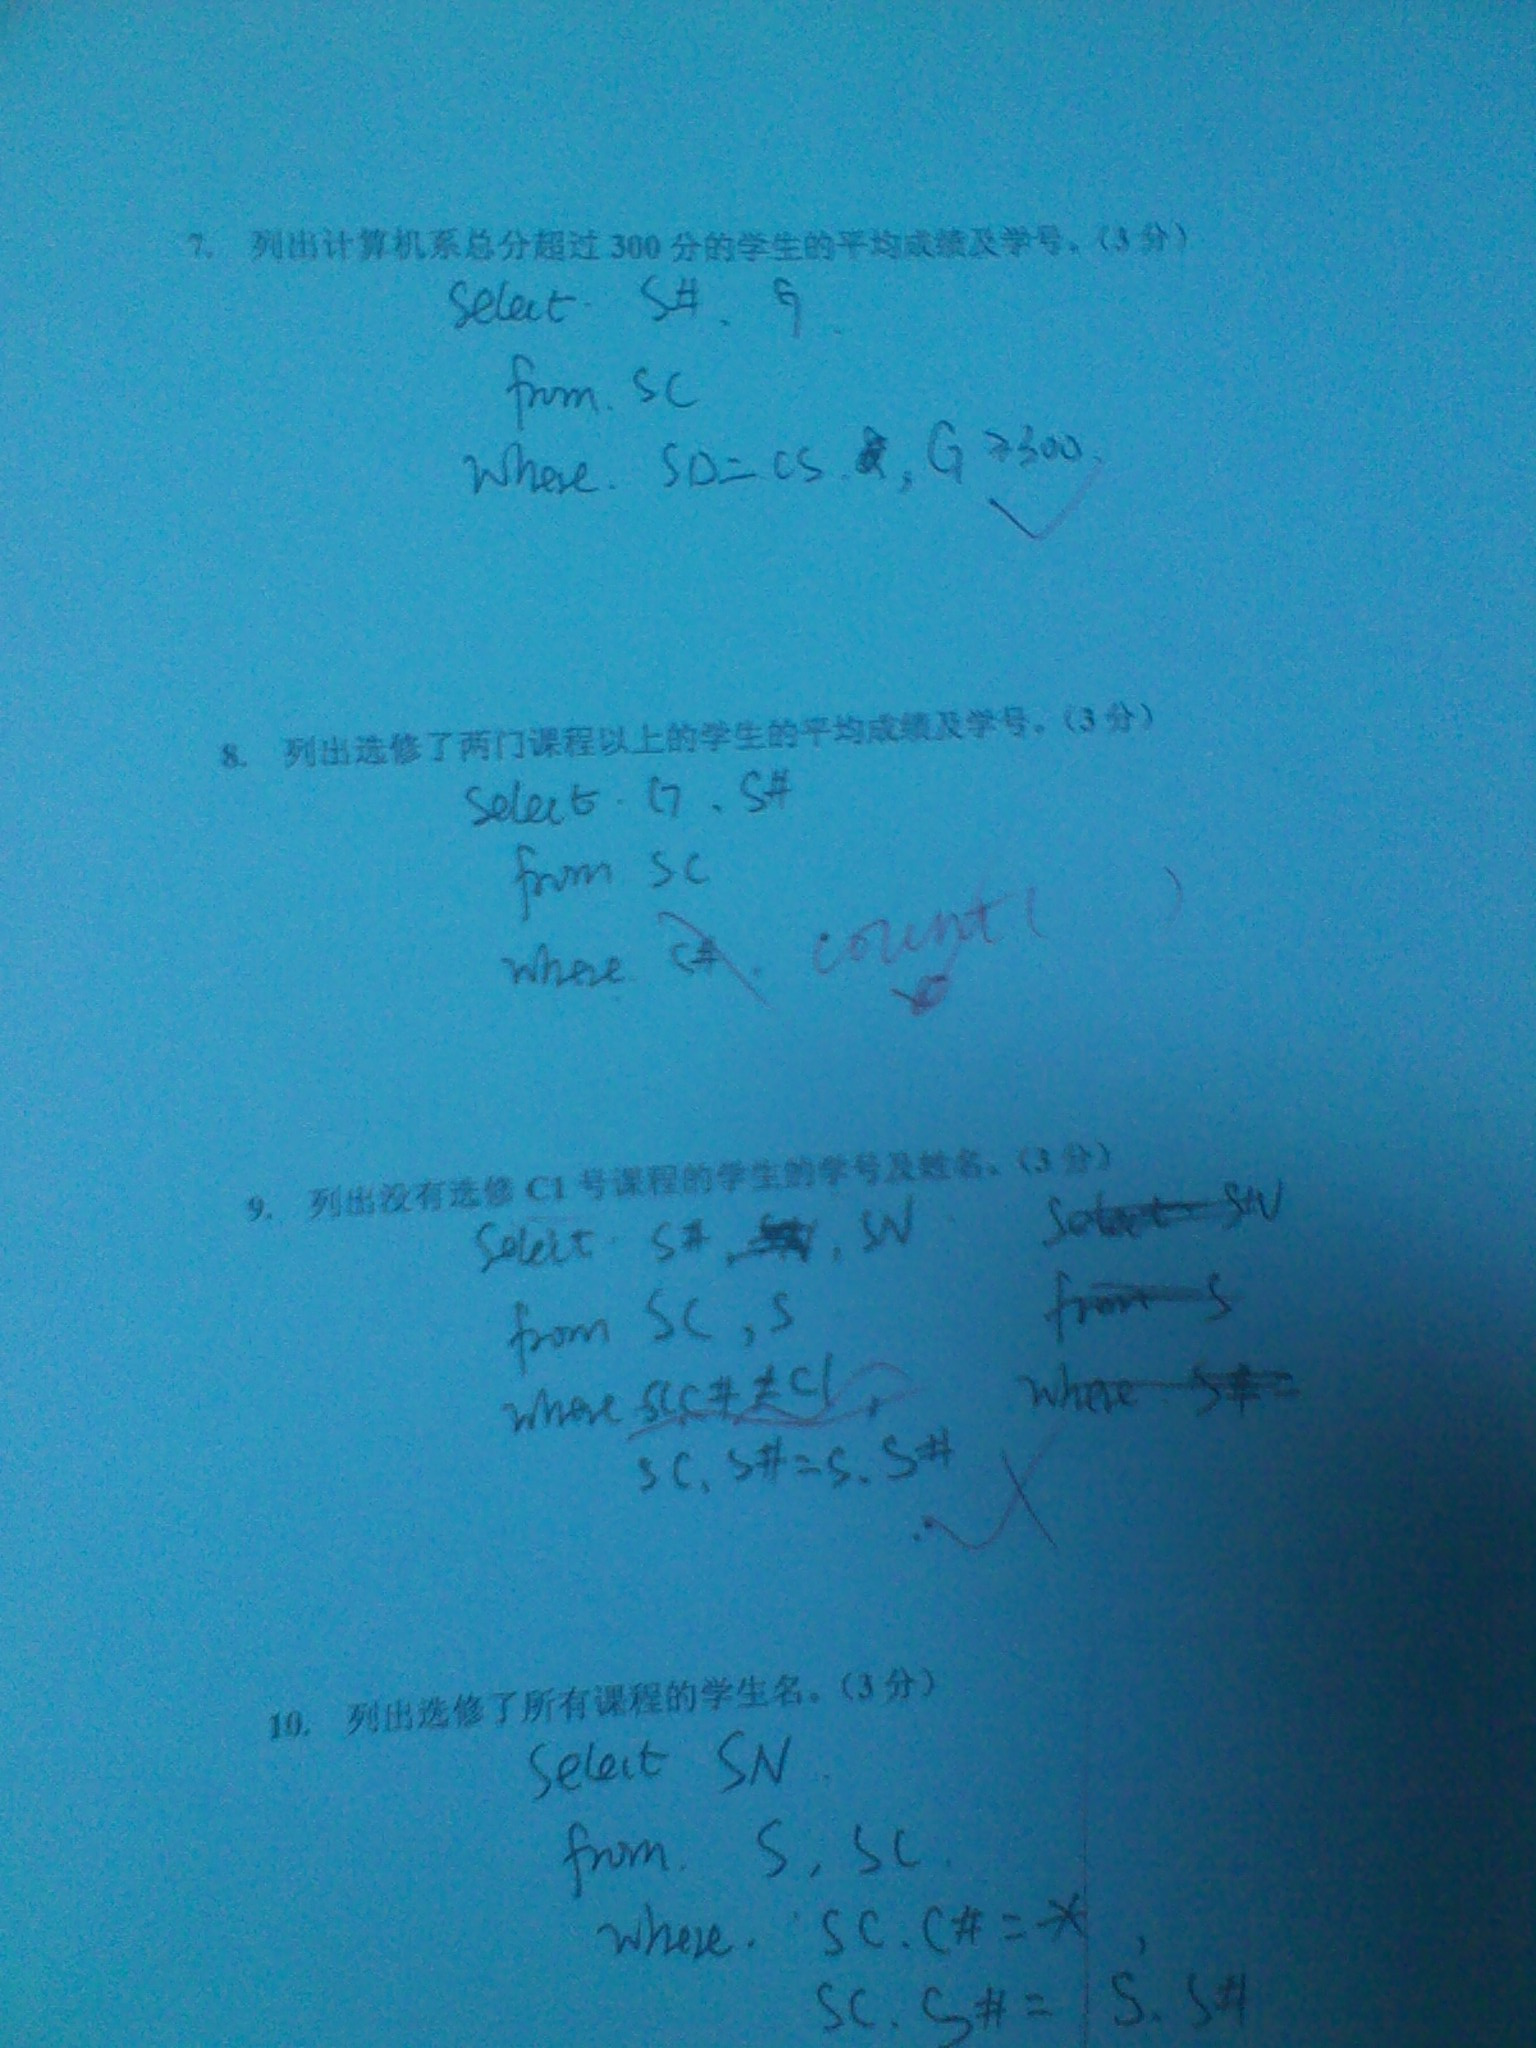 7. 列出计算机系总分超过 300 分的学生的平均成绩及学号。（3 分）
Select S#. G.
from. SC
where. SD=CS , G ≥300.
8. 列出选修了两门课程以上的学生的平均成绩及学号。（3 分）
Select G. S#
from SC
where C#. count( )
9. 列出没有选修 C1 号课程的学生的学号及姓名。（3 分）
Select S#, SN
Select SN
from SC, S
from S
where SCC# ≠C1,
where S# =
SC. S#=S. S#
10. 列出选修了所有课程的学生名。（3 分）
Select SN.
from. S, SC.
where. SC. C# = * ,
SC. S# = S. S#